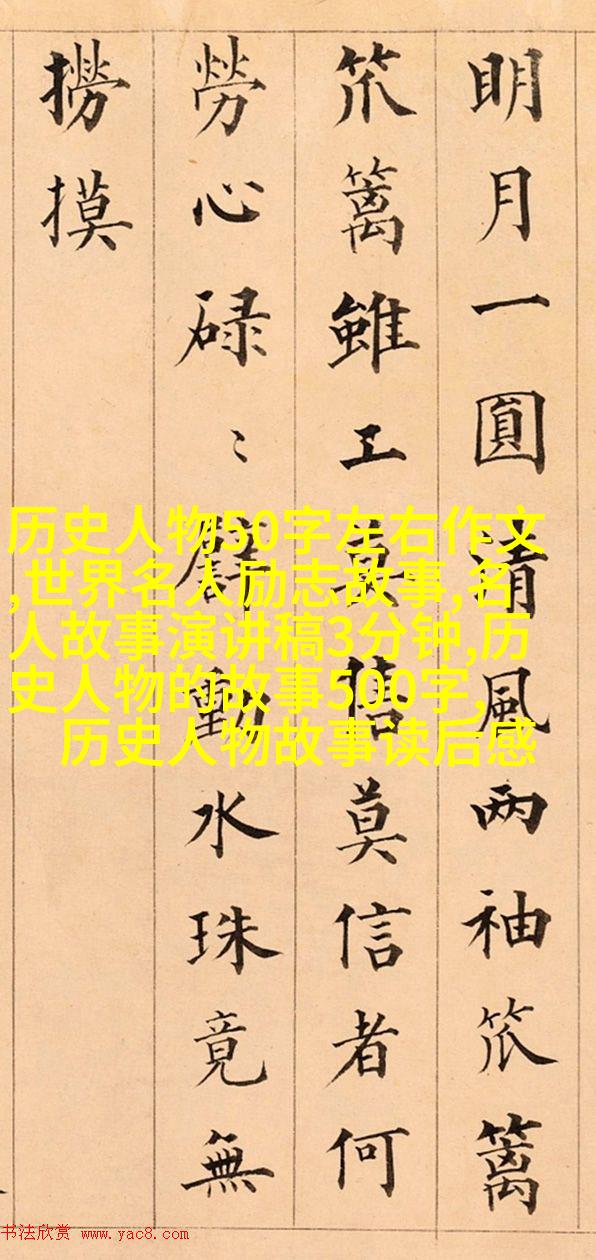 明月一圓清風两袖笊篱
笊篱雖工莫信者何
勞心碌〻動水珠竟無
撈摸
历史人物50字左右作文
,世界名人励志故事,名
人故事演讲稿3分钟,历
史人物的故事500字,
历史人物故事读后感
书法欣赏 www.yac8.com